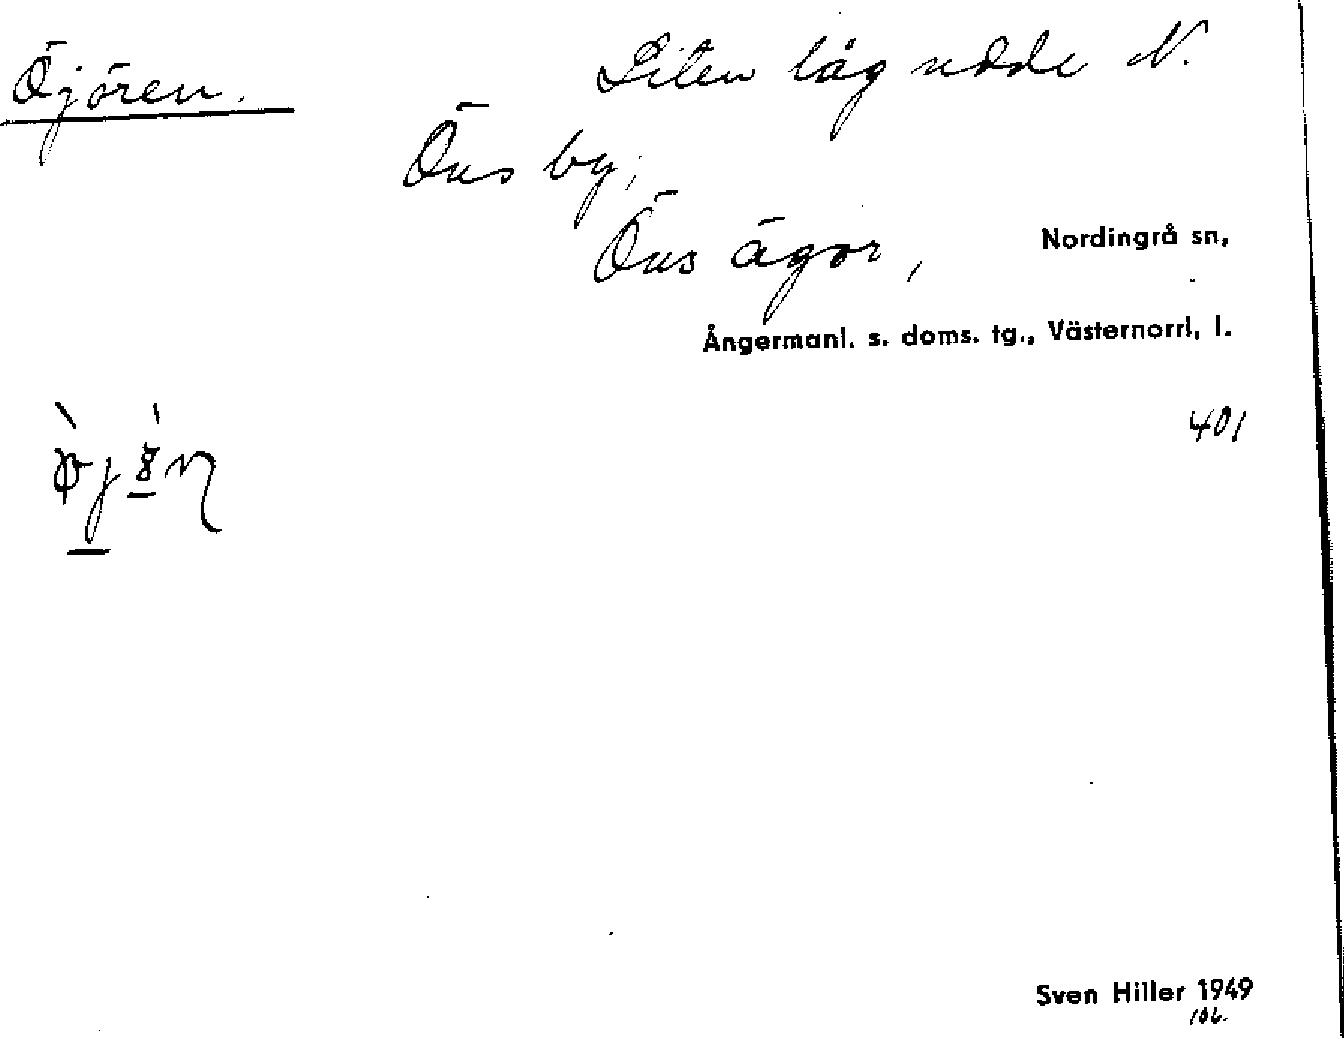 Öjören.
Liten låg udde N.
Öns by;
Öns ägor, Nordingrå sn,
Ångermanl. s. doms. tg., Västernorrl, l.
401
Sven Hiller 1949
106.